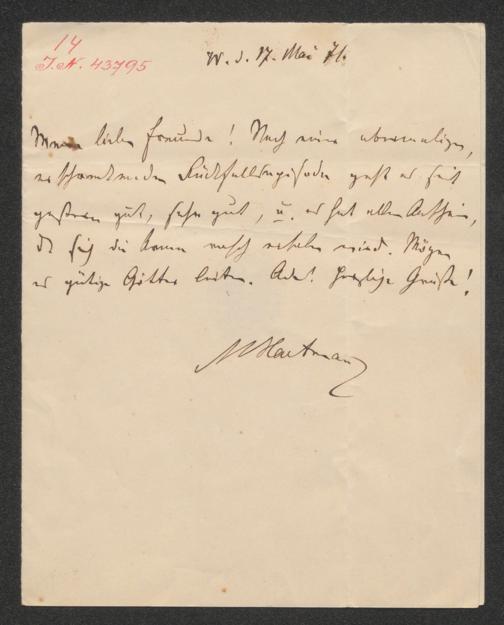 14
J.N. 43795
W. d. 17. Mai 71.
Meine lieben Freunde! Nach einer abermaligen,
erschreckenden Rückfallsepisode geht es seit
gestern gut, sehr gut, u. es hat allen Anschein,
daß sich die Kranke rasch erholen wird. Mögen
es gütige Götter leiten. Adio! Herzliche Grüße!
MHartmann